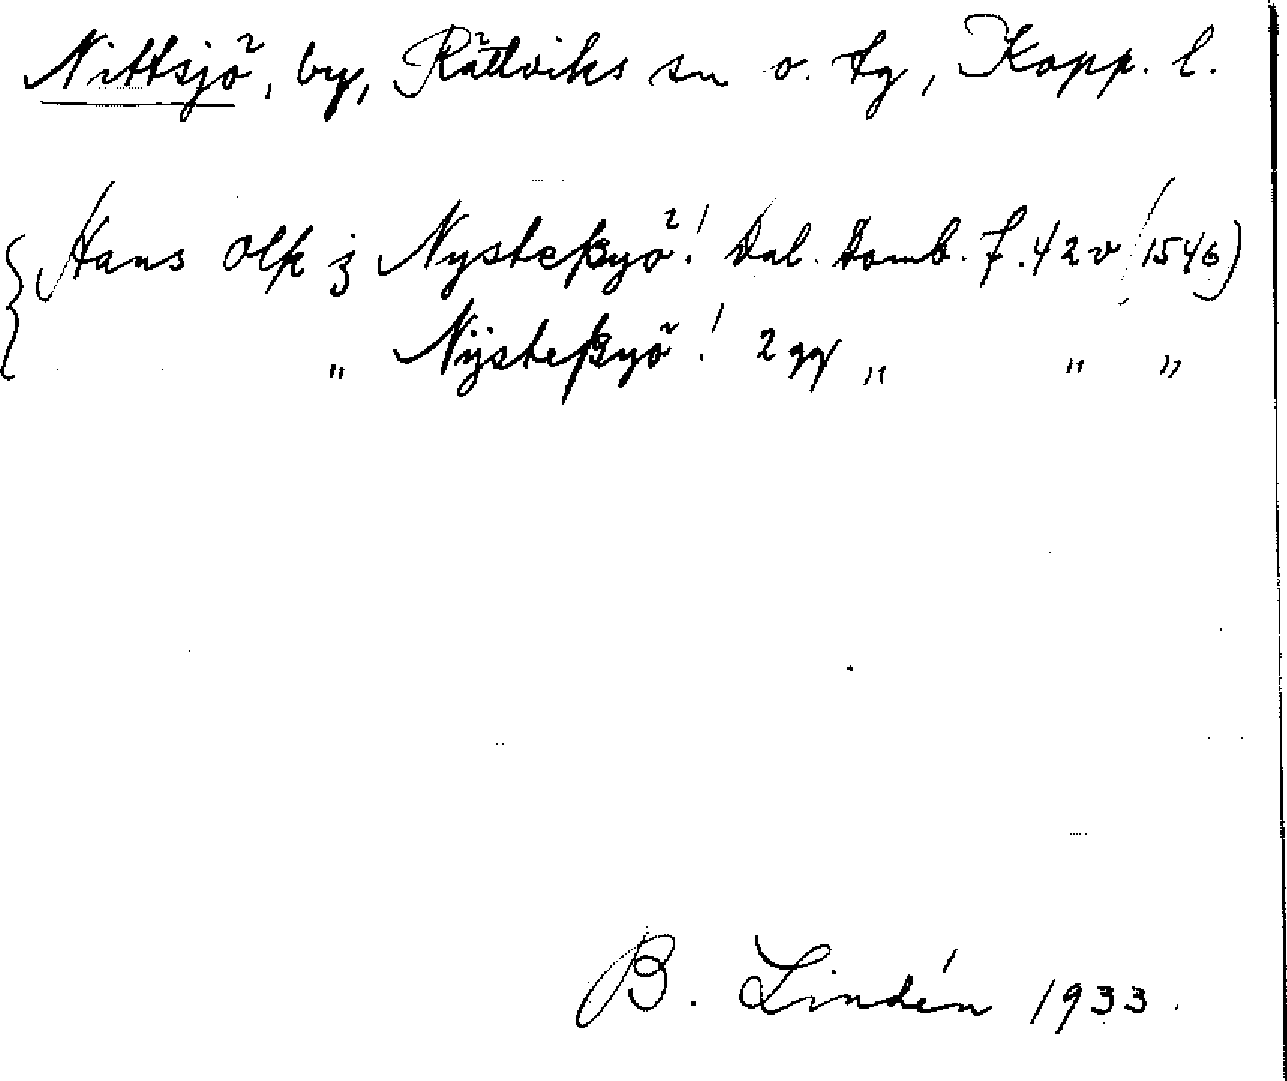 Nittsjö, by, Rättviks sn o. tg, Kopp. l.
Hans Olß j Nysteßyö! Dal. Domb. f. 42v (1546)
" Nÿsteßyö! 2 gg " " "
B. Lindén 1933.